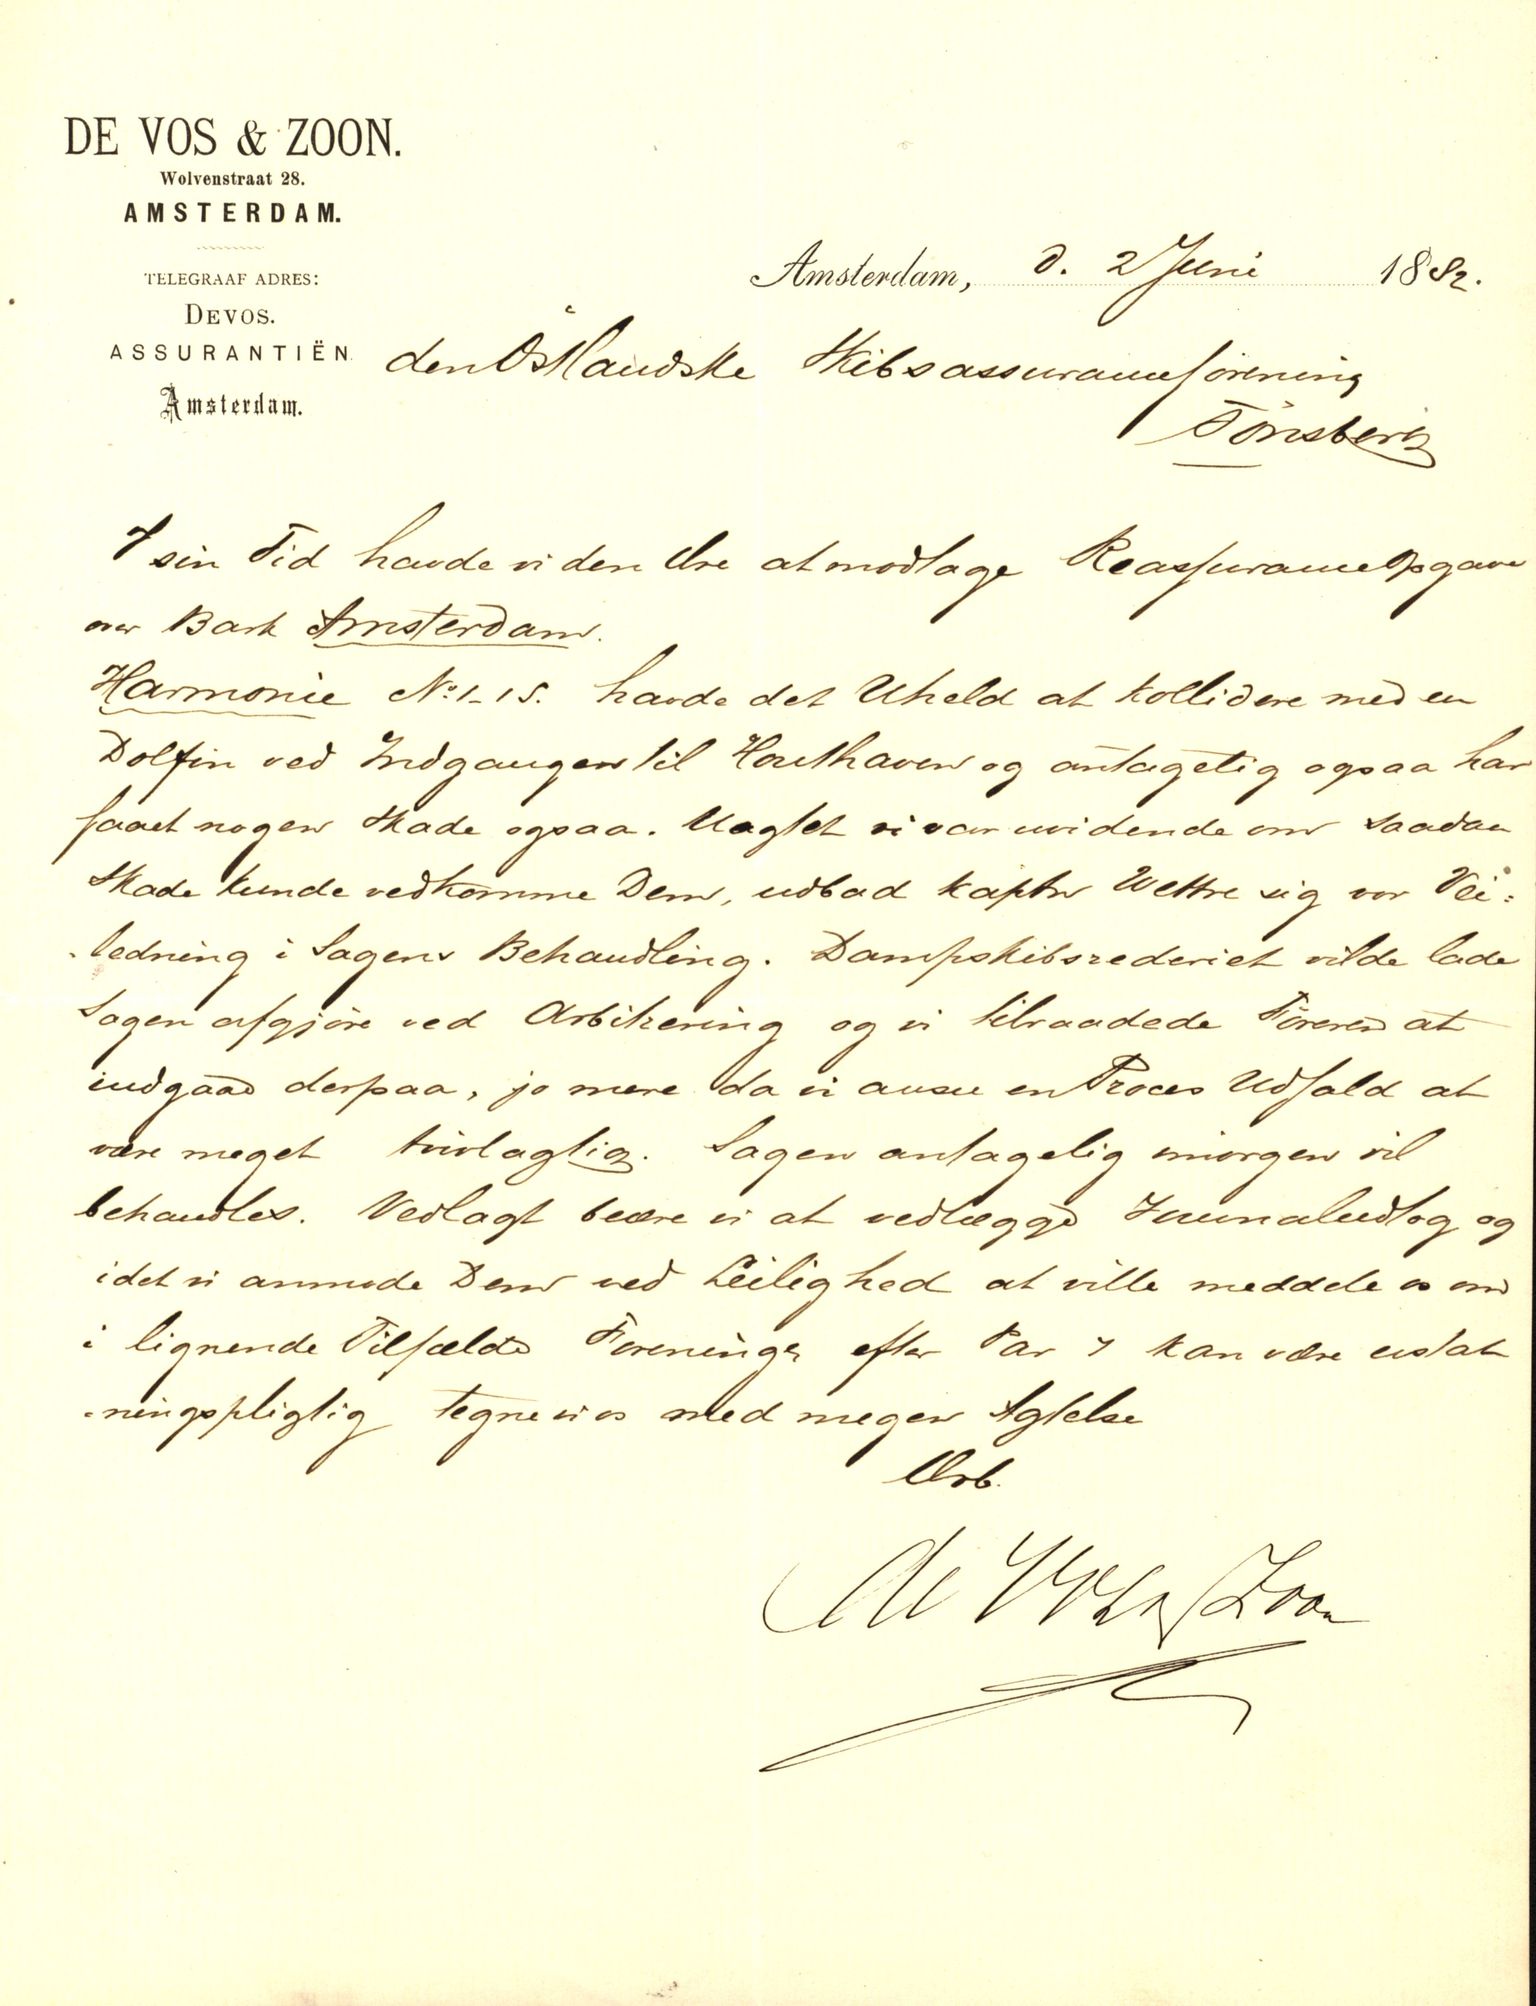 DE VOS & ZOON.
Wolvenstraat 28.
AMSTERDAM.
TELEGRAAF ADRES:
DEVOS.
ASSURANTIËN
Amsterdam.
Amsterdam, d. 2 Juni 1882.
den Östlandske Skibsassuranceforening
Tönsberg
I sin Tid havde vi den Ære at modtage Reassurance Opgave
over Bark Amsterdam.
Harmonie No. 1-15. havde det Uheld at kollidere med en
Dolfin ved Indgangen til Houthaven og antagetig ogsaa har
faaet nogen Skade ogsaa. Uagtet vi var uvidende om saadan
Skade kunde vedkomme Dem, udbad kaptn Wettre sig vor Vei=
=ledning i Sagens Behandling. Dampskibsrederiet vilde lade
Sagen afgjöre ved Arbitrering og vi tilraadede Föreren at
indgaae derpaa, jo mere da vi ansee en Proces Udfald at
være meget tvivlagtig. Sagen antagelig imorgen vil
behandles. Vedlagt beære vi at vedlægge Journaludtog og
idet vi anmode Dem ved Leilighed at ville meddele os om
i lignende Tilfælde Forening efter Par 7 kan være erstat
=ningspligtig tegne vi os med megen Agtelse
Ærb.
de Vos & Zoon